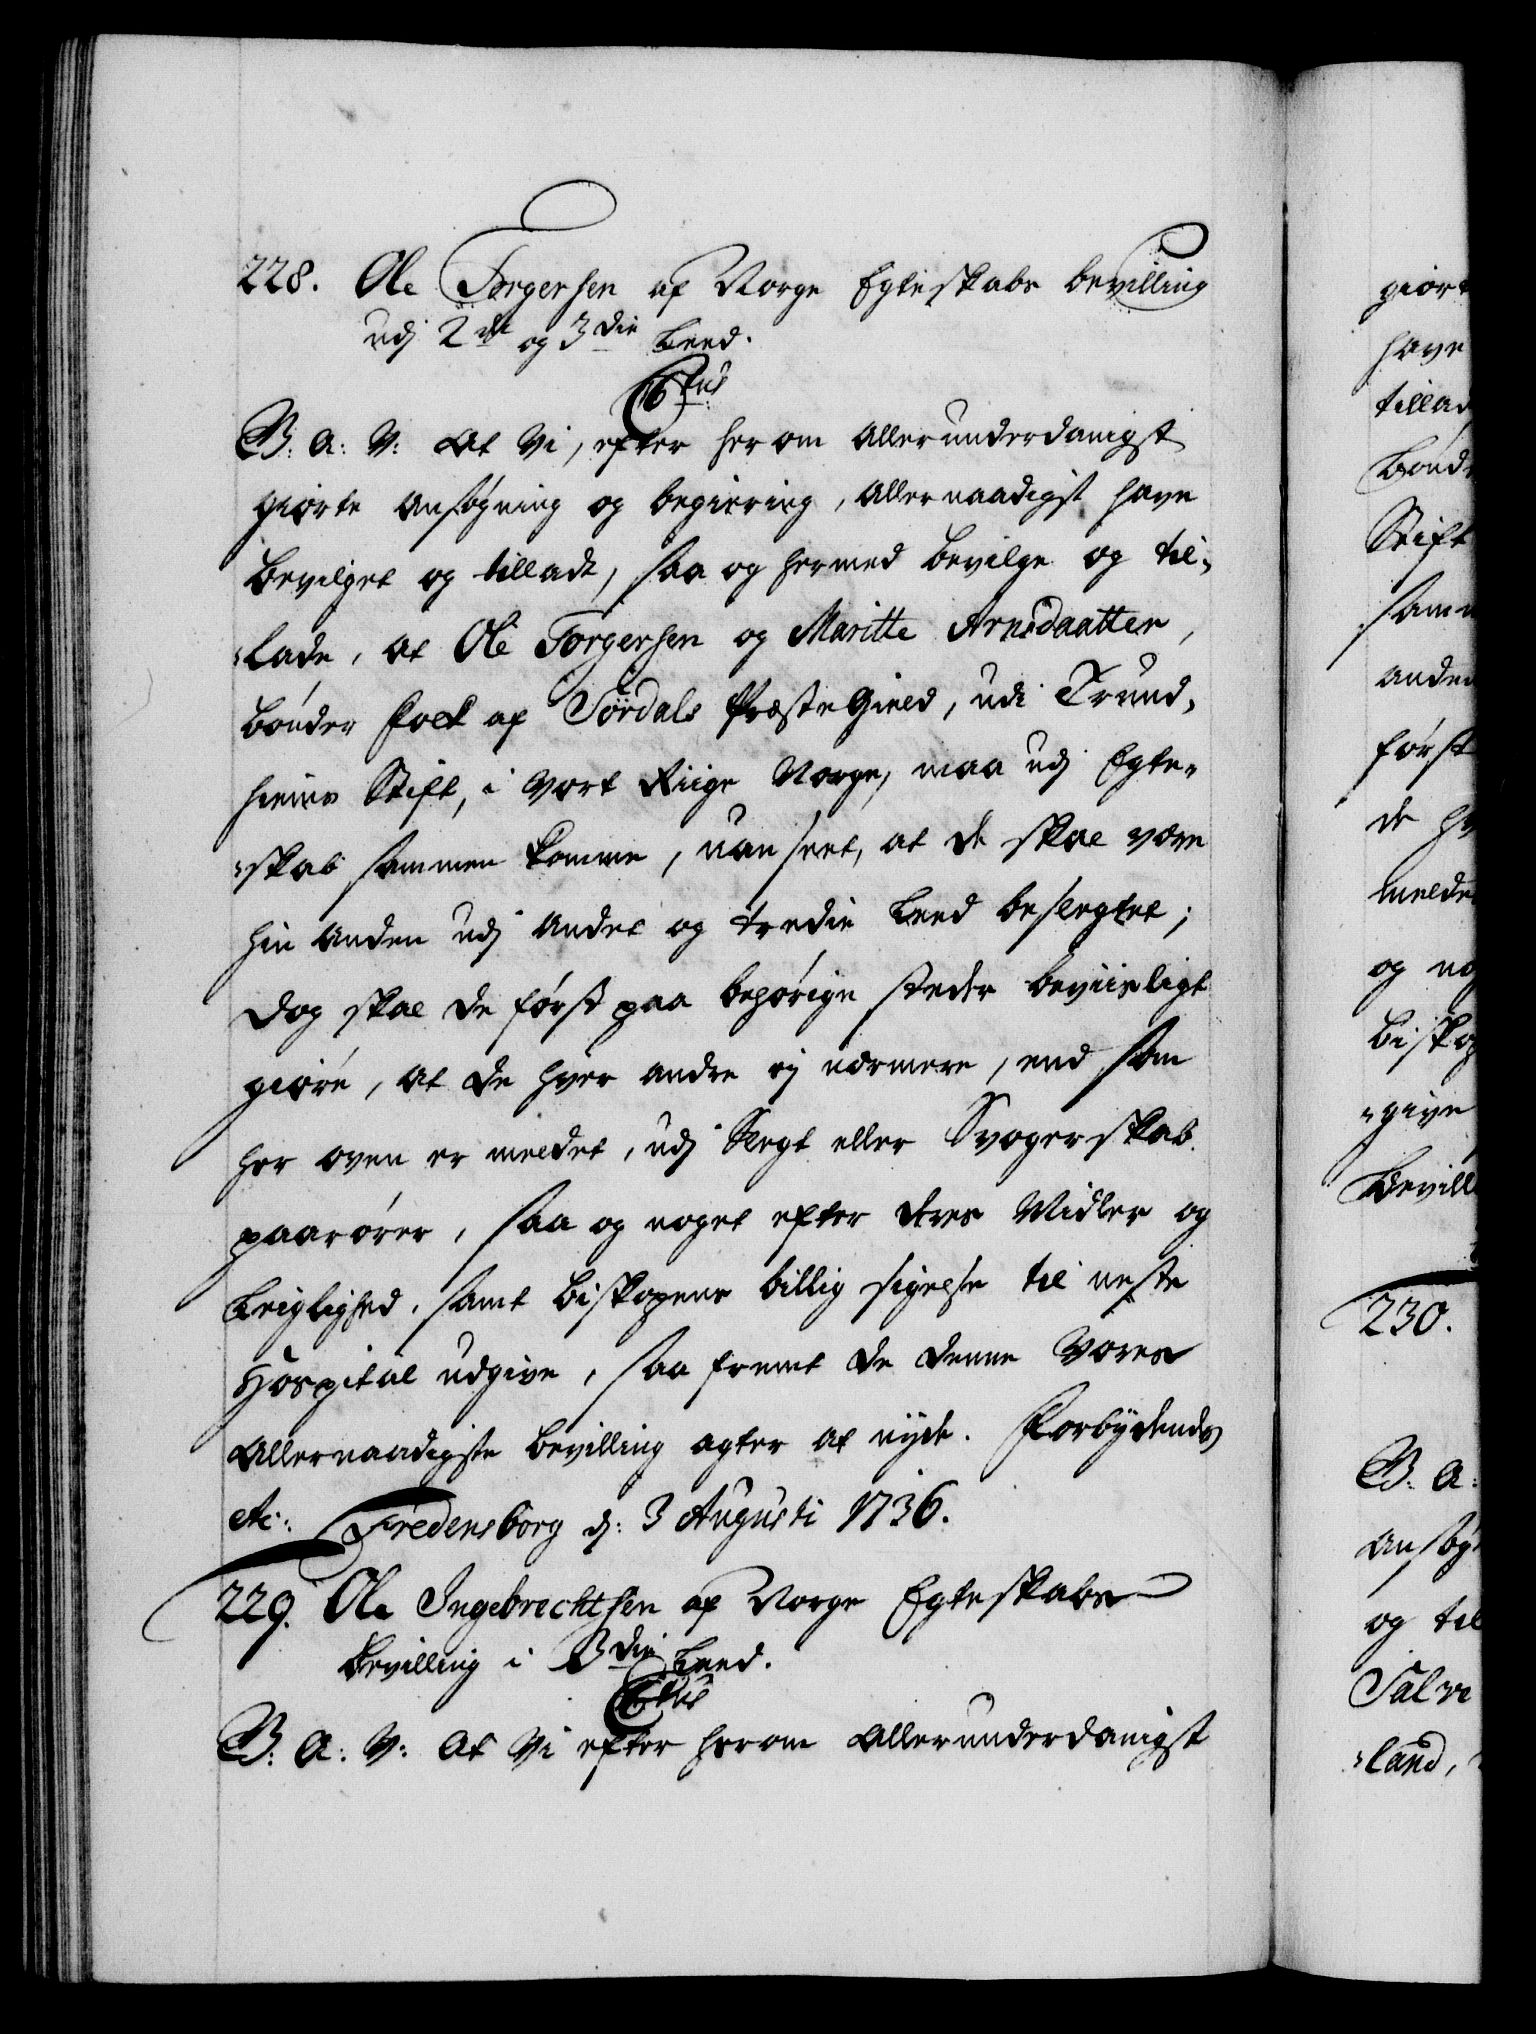 228. Ole Torgersen af Norge Egteskabs bevilling
udj 2det og 3die Leed.
C6tus
B: A: V: At Vi, efter herom allerunderdanigst
giorte Ansøgning og begiering, Allernaadigst have
bevilget og tilladt, saa og hermed bevilge og til-
lade, at Ole Torgersen og Maritte Arnsdaatter,
bønder folk af Sørdals Præste Gield, udi Trund-
hiems Stift, i Vort Riige Norge, maa udj Egte-
skab sammen komme, uanseet, at de skal være
hin anden udj andet og tredie Leed beslegtet;
Dog skal de først paa behørige steder beviisligt
giøre, at de hver andre ej nærmere, end som
her oven er meldet, udj Slegt eller Svogerskab
paarører, saa og noget efter deres Midler og
Leiglighed, samt Biskopens billig sigelse til neste
Hospital udgive, saa fremt de denne Vores
Allernaadigste bevilling agter at nyde. Forbydendes
etc: Fredensborg d: 3 Augusti 1736.
229. Ole Ingebrechtsen af Norge Egteskabs
bevilling i 3die Leed.
C6tus
B: A: V: At Vi efter herom allerunderdanigst
giort
have
tillad
bønde
Stift
samm
anden
først
de hv
melde
og no
bisko
-give
bevill
230.
B: A:
ansøg
og til
Salve
-land,